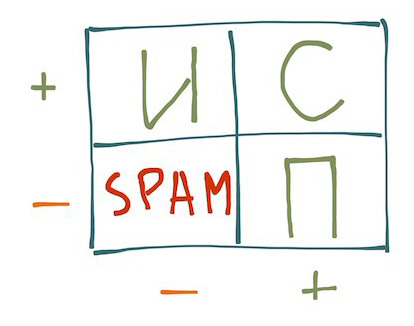 + И С
− SPAM П
− +